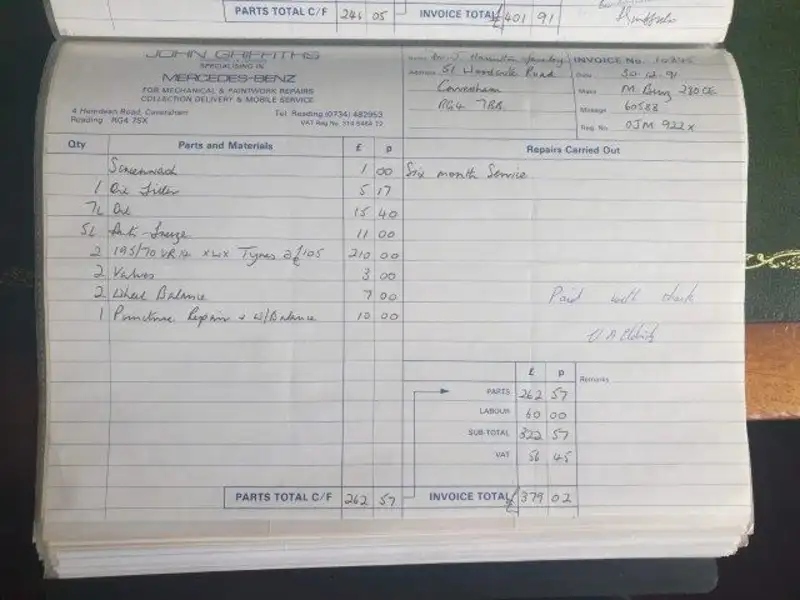 PARTS TOTAL C/F 246 05 INVOICE TOTAL £401 91
JOHN GRIFFITHS
SPECIALISING IN
MERCEDES-BENZ
FOR MECHANICAL & PAINTWORK REPAIRS
COLLECTION DELIVERY & MOBILE SERVICE
4 Herndean Road, Caversham
Reading RG4 7SX
Tel Reading (0734) 482953
VAT Reg No.
Name Mr J.
Address 51 Woodcote Road
Caversham
RG4 7BB
INVOICE No.
Date 30.12.91
Make M. Benz 280CE
Mileage 60588
Reg. No. OJM 922X
Qty Parts and Materials £ p Repairs Carried Out
Screenwash 1 00 Six month Service
1 Oil Filter 5 17
7L Oil 15 40
5L Anti-Freeze 11 00
2 195/70 VR14 XWX Tyres @ £105 210 00
2 Valves 3 00
2 Wheel Balance 7 00
1 Puncture Repair + W/Balance 10 00
Paid with thanks
£ p
PARTS 262 57
LABOUR 60 00
SUB-TOTAL 322 57
VAT 56 45
Remarks
PARTS TOTAL C/F 262 57 INVOICE TOTAL £379 02